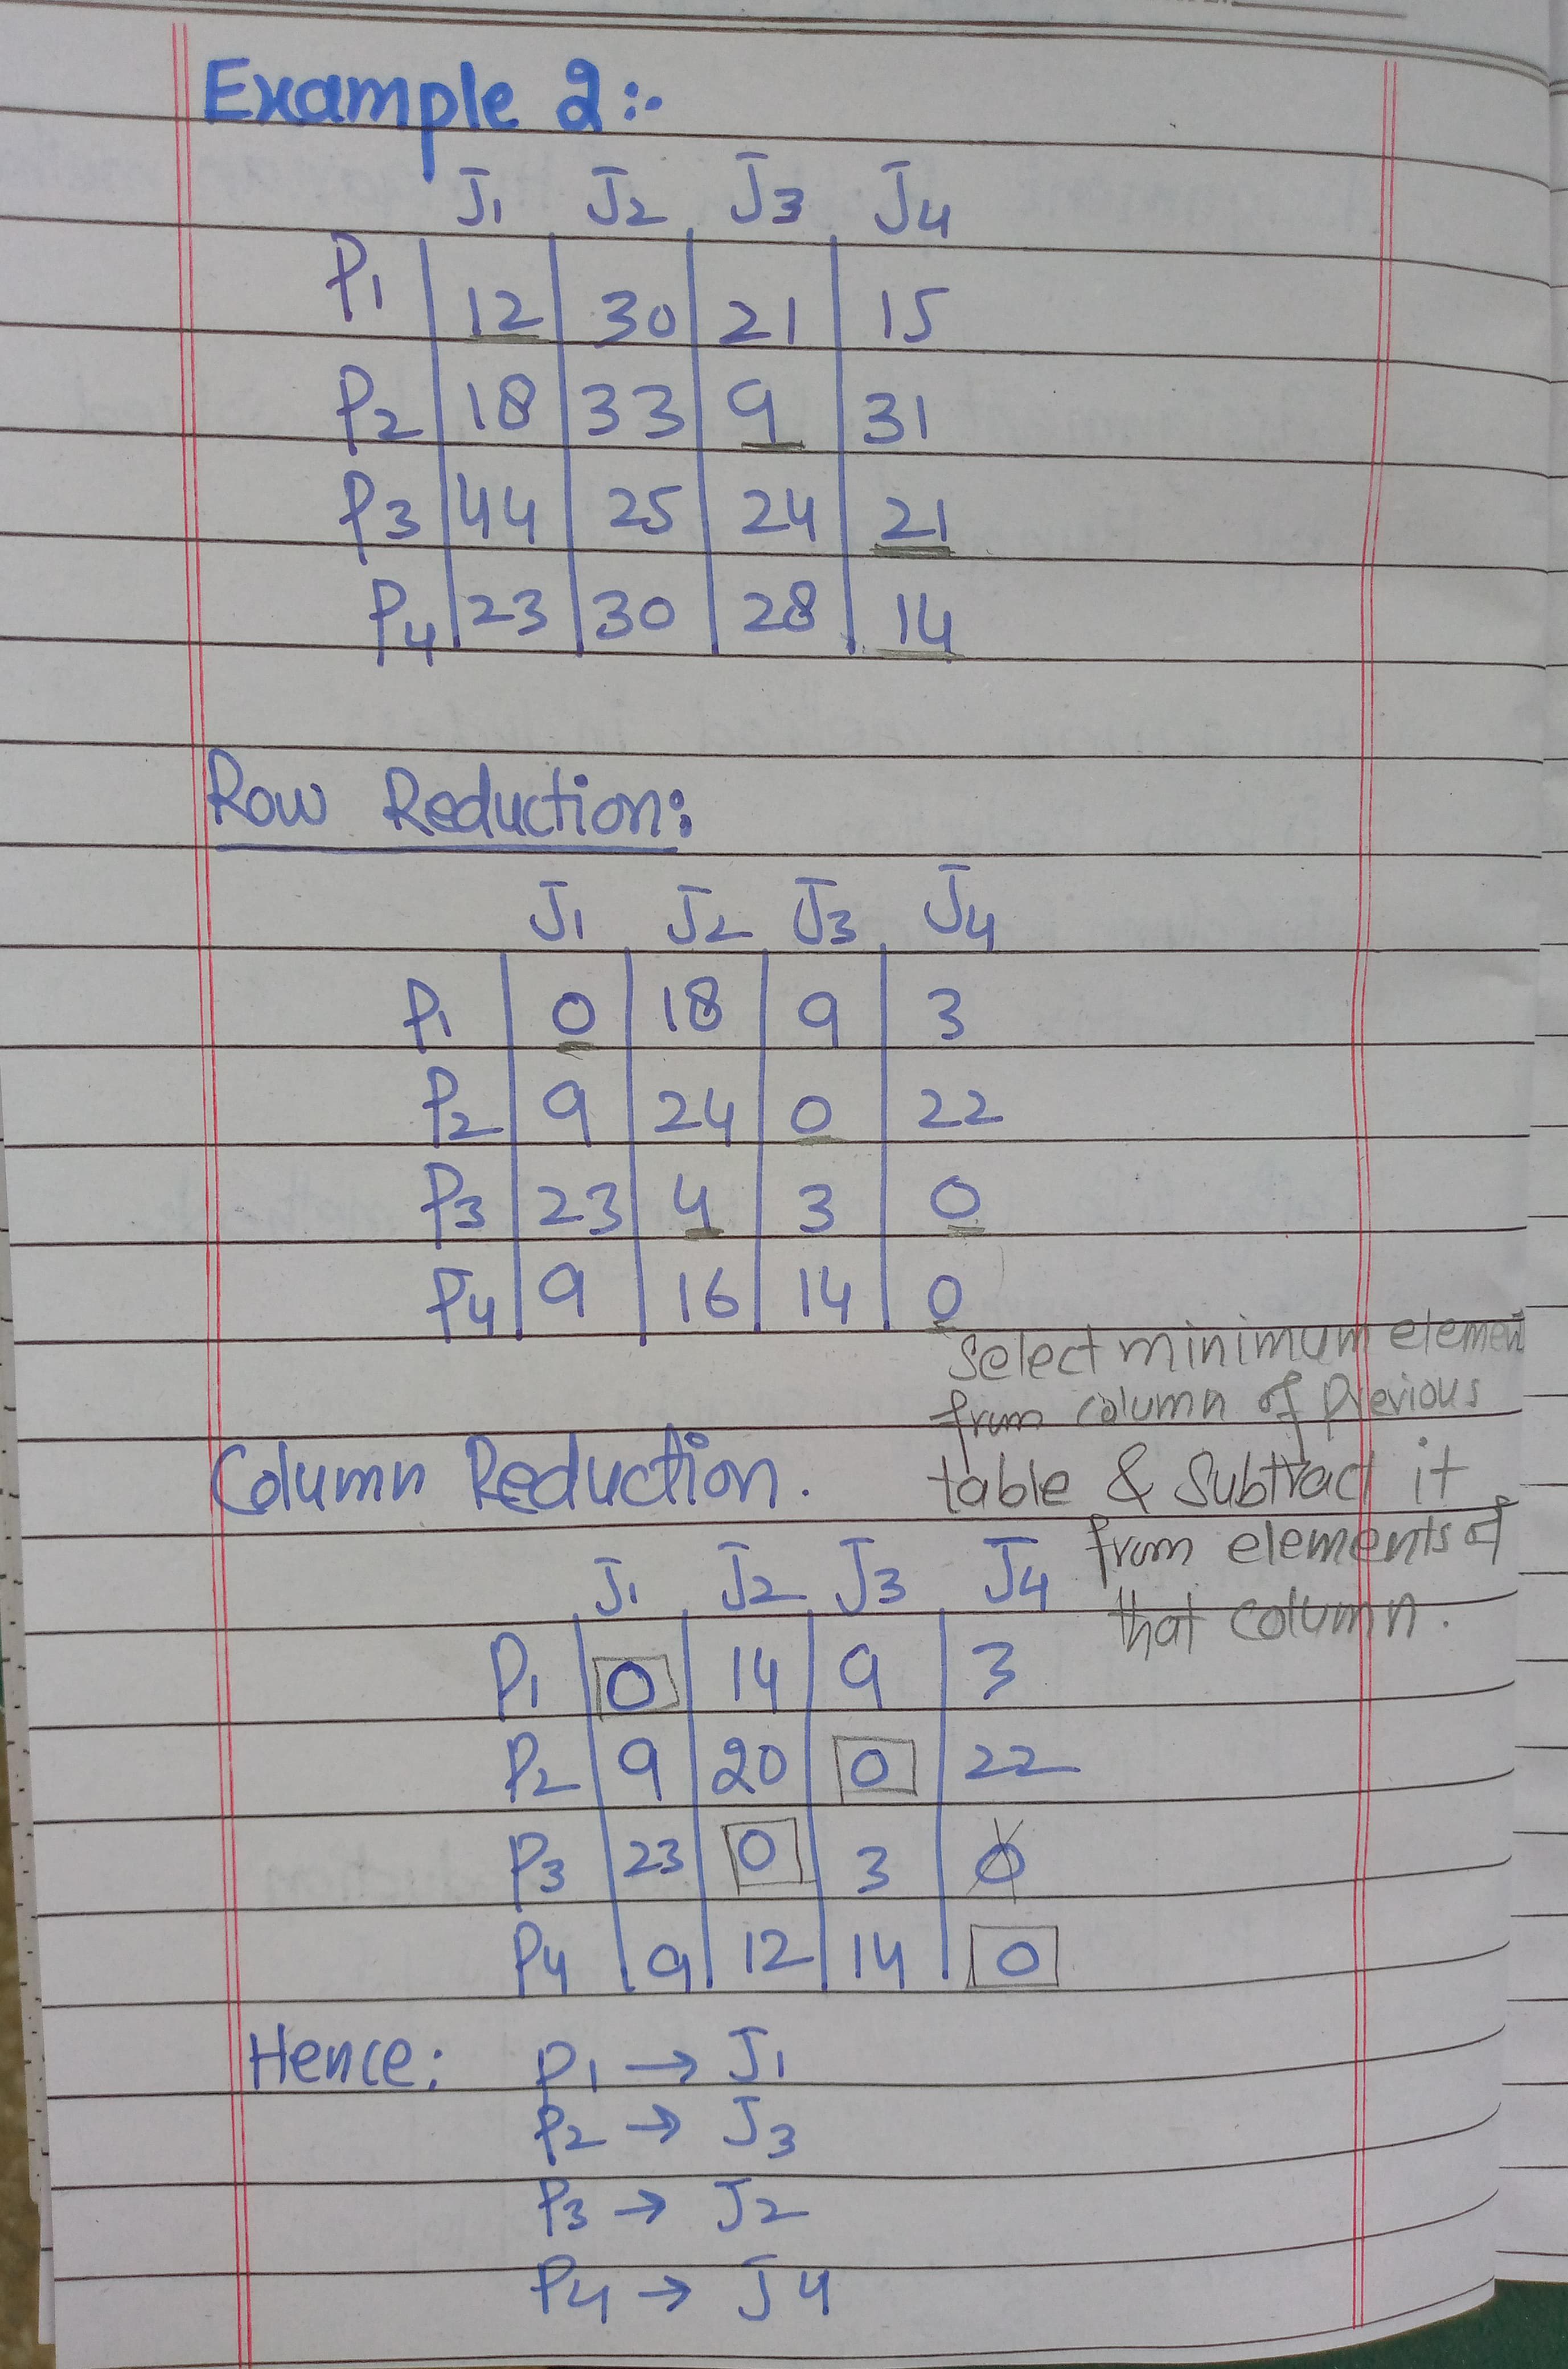 Example 2:-
J1 J2 J3 J4
P1 12 30 21 15
P2 18 33 9 31
P3 44 25 24 21
P4 23 30 28 14
Row Reduction:
J1 J2 J3 J4
P1 0 18 9 3
P2 9 24 0 22
P3 23 4 3 0
P4 9 16 14 0
Select minimum elemen
from column of previous
Column Reduction. table & Subtract it
from elements of
that column.
J1 J2 J3 J4
P1 0 14 9 3
P2 9 20 0 22
P3 23 0 3 0
P4 9 12 14 0
Hence: P1 → J1
P2 → J3
P3 → J2
P4 → J4